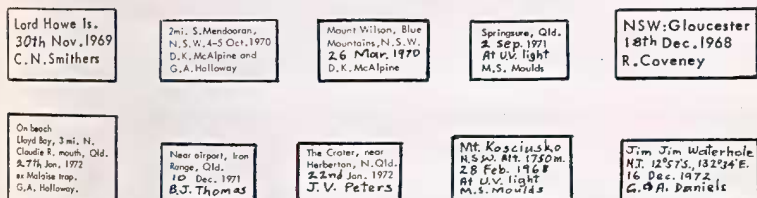 Lord Howe Is.
30th Nov. 1969
C.N. Smithers
2mi. S. Mendooran,
N.S.W. 4-5 Oct. 1970
D.K. McAlpine and
G.A. Holloway
Mount Wilson, Blue
Mountains, N.S.W.
26 Mar. 1970
D.K. McAlpine
Springsure, Qld.
2 Sep. 1971
At U.V. light
M.S. Moulds
NSW: Gloucester
18th Dec. 1968
R. Coveney
On beach
Lloyd Bay, 3 mi. N.
Claudie R. mouth, Qld.
27th Jan, 1972
ex Malaise trap.
G.A. Holloway.
Near airport, Iron
Range, Qld.
10 Dec. 1971
B.J. Thomas
The Crater, near
Herberton, N.Qld.
22nd Jan. 1972
J.V. Peters
Mt. Kosciusko
N.S.W. Alt. 1750m.
28 Feb. 1968
At U.V. light
M.S. Moulds
Jim Jim Waterhole
N.T. 12°57'S., 132°34'E.
16 Dec. 1972
G. & A. Daniels